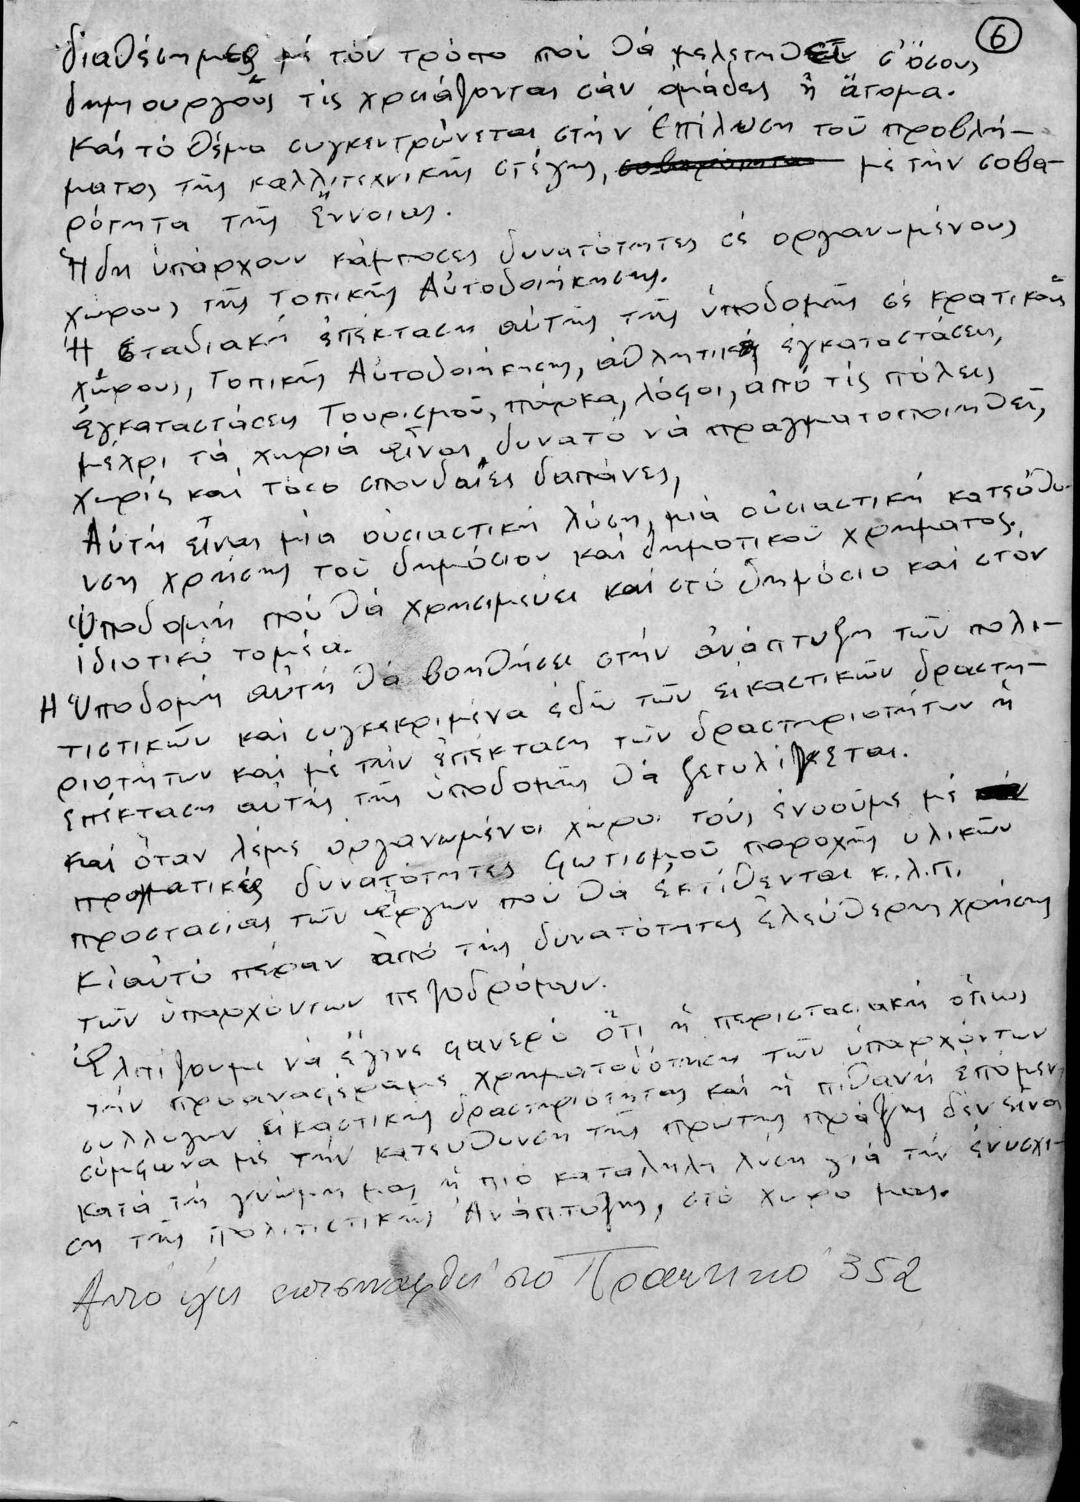 6
διαθέσιμες μέ τόν τρόπο πού θά μελετηθεῖ σ' ὅσους
δημιουργούς τίς χρειάζονται σάν ὁμάδες ἤ ἄτομα.
Καί τό θέμα συγκεντρώνεται στήν ἐπίλυση τοῦ προβλή-
ματος τῆς καλλιτεχνικῆς στέγης, μέ τήν σοβα-
ρότητα τῆς ἔννοιας.
Ἤδη ὑπάρχουν κάμποσες δυνατότητες σέ οργανωμένους
χώρους τῆς Τοπικῆς Αὐτοδοιήκησης.
Ἡ σταδιακή ἐπέκταση αὐτῆς τῆς ὑποδομῆς σέ κρατικούς
χώρους, Τοπικῆς Αὐτοδοιήκησης, ἀθλητικές ἐγκαταστάσεις,
ἐγκαταστάσεις Τουρισμοῦ, πάρκα, λόφοι, ἀπό τίς πόλεις
μέχρι τά χωριά εἶναι δυνατό νά πραγματοποιηθεῖ,
χωρίς καί τόσο σπουδαῖες δαπάνες,
Αὐτή εἶναι μία οὐσιαστική λύση, μιά οὐσιαστική κατεύθυ-
νση χρήσης τοῦ δημόσιου καί δημοτικοῦ χρήματος.
Ὑποδομή πού θά χρησιμεύει καί στό δημόσιο καί στόν
ἰδιοτικό τομέα.
Η Ὑποδομή αὐτή θά βοηθήσει στήν ἀνάπτυξη τῶν πολι-
τιστικῶν καί συγκεκριμένα ἐδῶ τῶν εικαστικῶν δραστη-
ριοτήτων καί μέ τήν ἐπέκταση τῶν δραστηριοτήτων ἡ
ἐπέκταση αὐτῆς τῆς ὑποδομῆς θά ξετυλίγεται.
Καί ὅταν λέμε ὀργανωμένοι χῶροι τούς ἐννοοῦμε μέ
πραματικές δυνατότητες φωτισμοῦ παροχῆς υλικῶν
προστασίας τῶν ἔργων πού θά ἐκτίθενται κ.λ.π.
Κι αὐτό πέραν ἀπό τής δυνατότητες ἐλεύθερης χρήσης
τῶν ὑπαρχόντων πεζοδρόμων.
Ἐλπίζουμε νά ἔγινε φανερό ὅτι ἡ περιστασιακή ὅπως
τήν προαναφέραμε χρηματοδότηση τῶν ὑπαρχόντων
συλλόγων εἰκαστικῆς δραστηριότητας καί ἡ πιθανή ἑπόμενη
σύμφωνα μέ τήν κατεύθυνση τῆς πρώτης πράξης δέν εἶναι
κατά τή γνώμη μας ἡ πιό καταληλη λύση γιά τήν ἐνίσχυ-
ση τῆς πολιτιστικῆς Ἀνάπτυξης, στό χώρο μας.
Αυτό έχει στο Πρακτικό 352